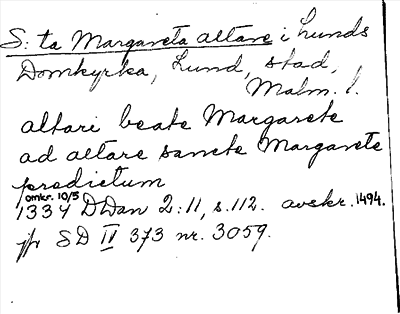 S:ta Margareta altare i Lunds
Domkyrka, Lund, stad,
Malm. l.
altari beate Margarete
ad altare sancte Margarete
predictum
omkr. 10/5
1334 DDan 2:11, s. 112. avskr. 1494.
jfr SD II 373 nr. 3059.